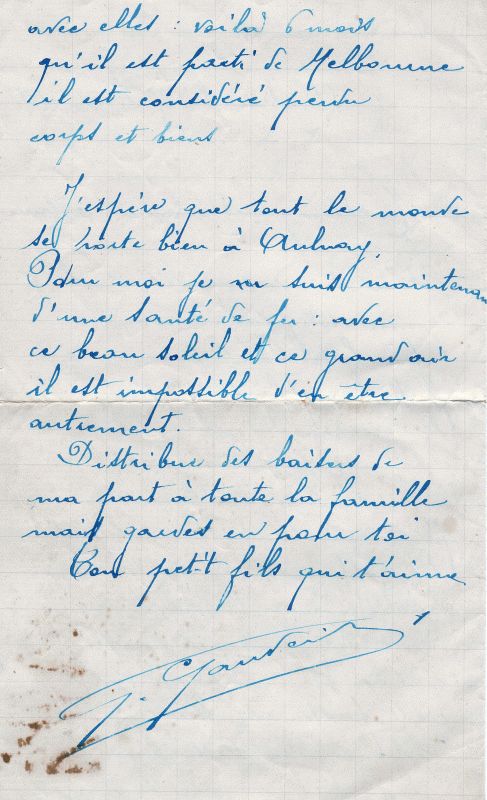 avec elles : voilà 6 mois
qu'il est parti de Melbourne
il est considéré perdu
corps et biens
J'espère que tout le monde
se porte bien à Aulnay,
Pour moi je suis maintenan
d'une santé de fer : avec
ce beau soleil et ce grand air
il est impossible d'en être
autrement.
Distribue des baisers de
ma part à toute la famille
mais gardes en pour toi
Ton petit fils qui t'aime